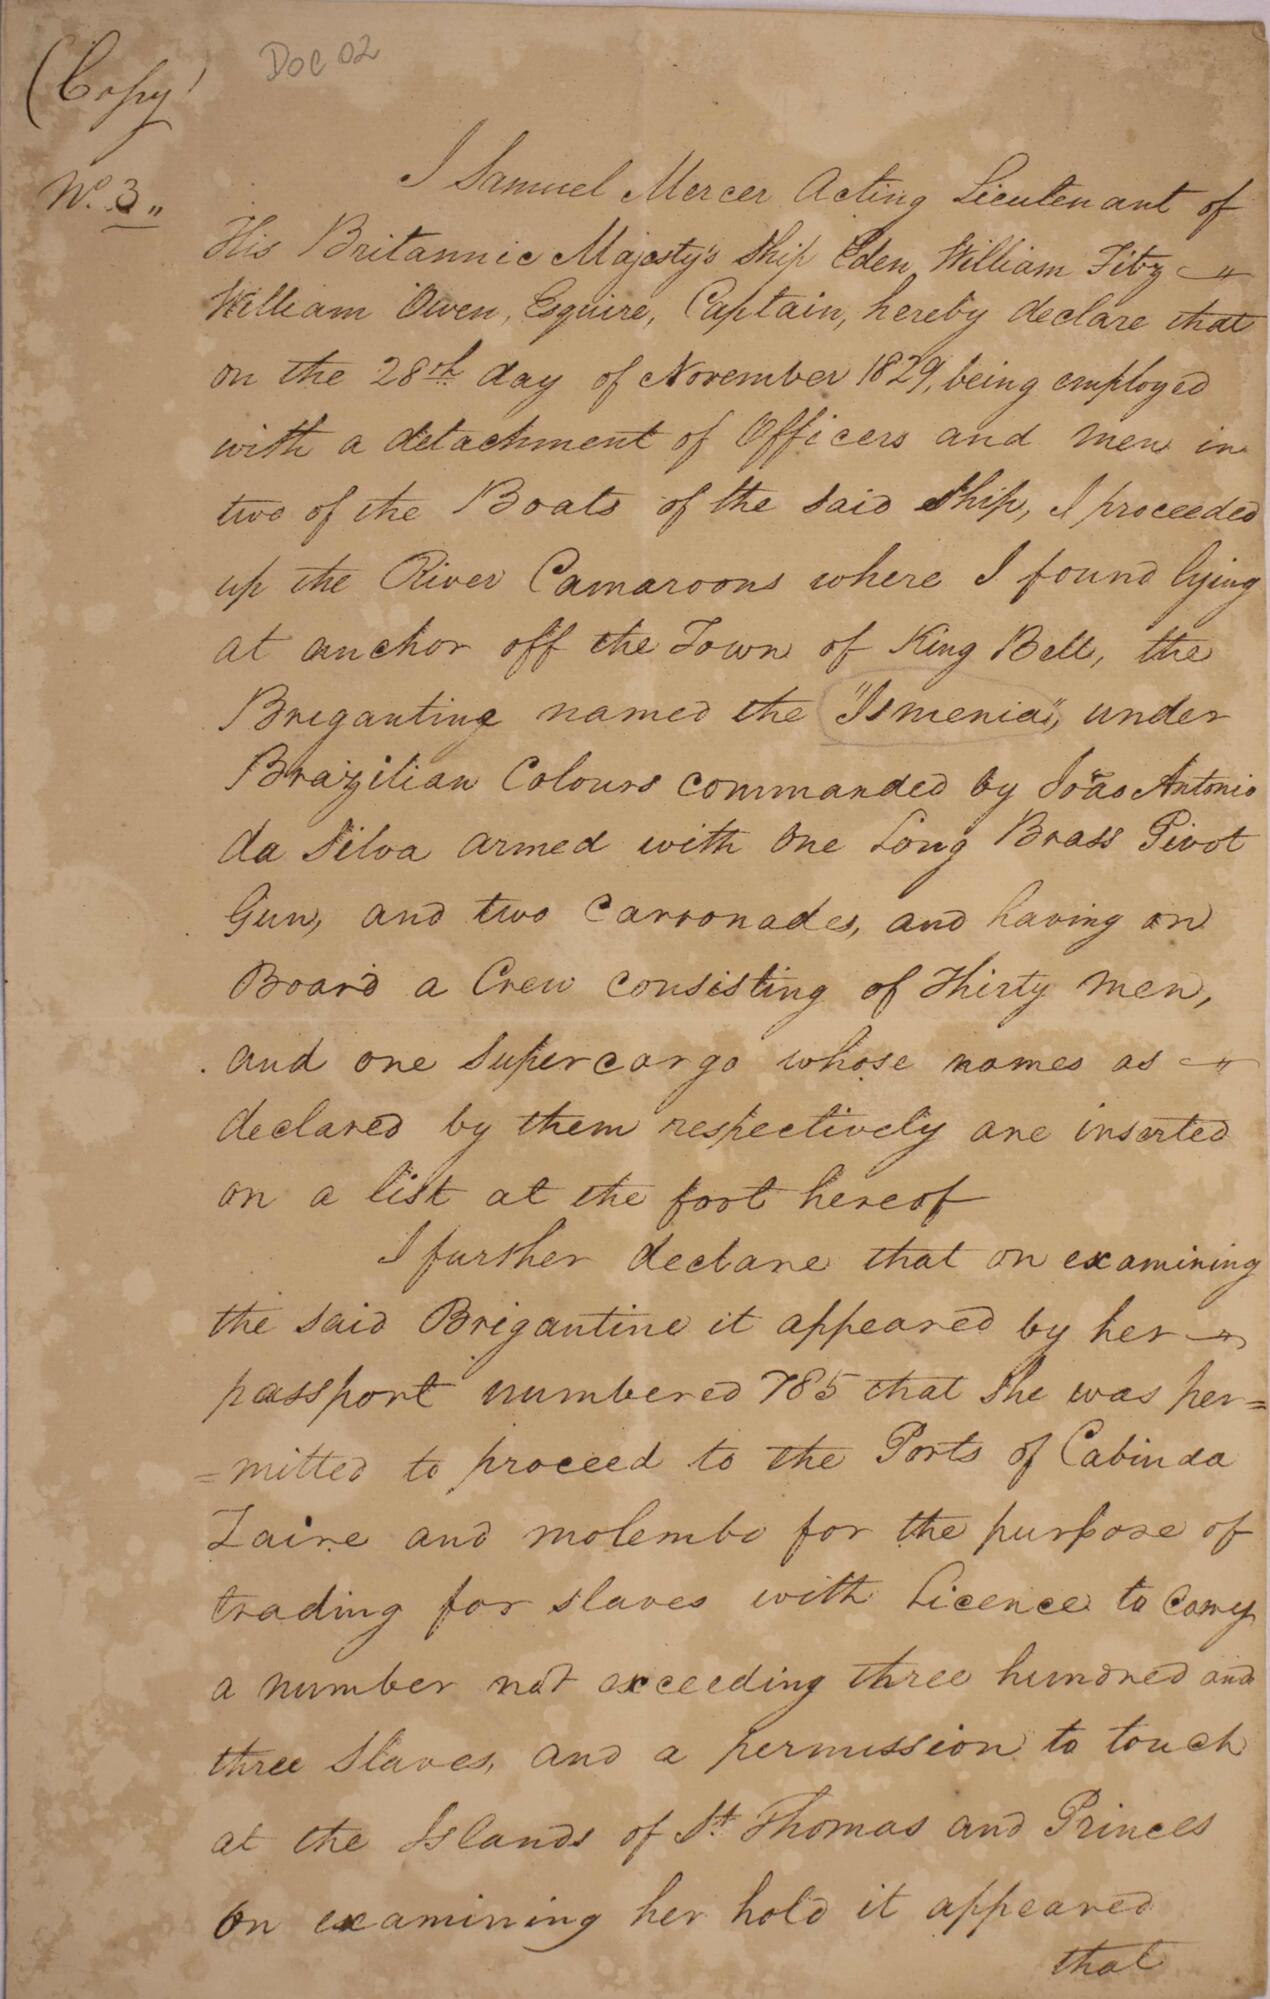 (Copy)
Doc 02
No. 3„
I Samuel Mercer Acting Lieutenant of
His Britannic Majesty's Ship Eden, William Fitz
William Owen, Esquire, Captain, hereby declare that
on the 28th day of November 1829, being employed
with a detachment of Officers and men in
two of the Boats of the said Ship, I proceeded
up the River Camaroons where I found lying
at anchor off the Town of King Bell, the
Brigantine named the "Ismenia", under
Brazilian Colours commanded by João Antonio
da Silva armed with One Long Brass Pivot
Gun, and two Carronades, and having on
Board a Crew consisting of Thirty Men,
and one Supercargo whose names as
declared by them respectively are inserted
on a list at the foot hereof
I further declare that on examining
the said Brigantine it appeared by her
passport numbered 785 that She was per=
=mitted to proceed to the Ports of Cabinda
Zaire and Molembo for the purpose of
trading for slaves with Licence to Carry
a number not exceeding three hundred and
three Slaves, and a permission to touch
at the Islands of St. Thomas and Princes
On examining her hold it appeared
that